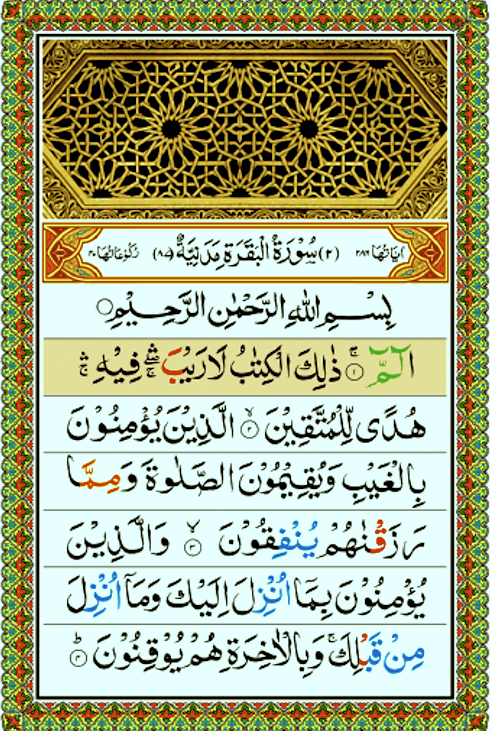 اٰیَاتُهَا ٢٨٦ (٢) سُوْرَةُ الْبَقَرَةِ مَدَنِیَّةٌ (٨٧) رُکُوْعَاتُهَا ٤٠
بِسْمِ اللّٰهِ الرَّحْمٰنِ الرَّحِیْمِ
الٓمّٓ ۚ﴿١﴾ ذٰلِكَ الْكِتٰبُ لَا رَیْبَ ۛۖۚ فِیْهِ ۛۚ
هُدًی لِّلْمُتَّقِیْنَ ۙ﴿٢﴾ الَّذِیْنَ یُؤْمِنُوْنَ
بِالْغَیْبِ وَیُقِیْمُوْنَ الصَّلٰوةَ وَمِمَّا
رَزَقْنٰهُمْ یُنْفِقُوْنَ ۙ﴿٣﴾ وَالَّذِیْنَ
یُؤْمِنُوْنَ بِمَاۤ اُنْزِلَ اِلَیْكَ وَمَاۤ اُنْزِلَ
مِنْ قَبْلِكَ ۚ وَبِالْاٰخِرَةِ هُمْ یُوْقِنُوْنَ ؕ﴿٤﴾